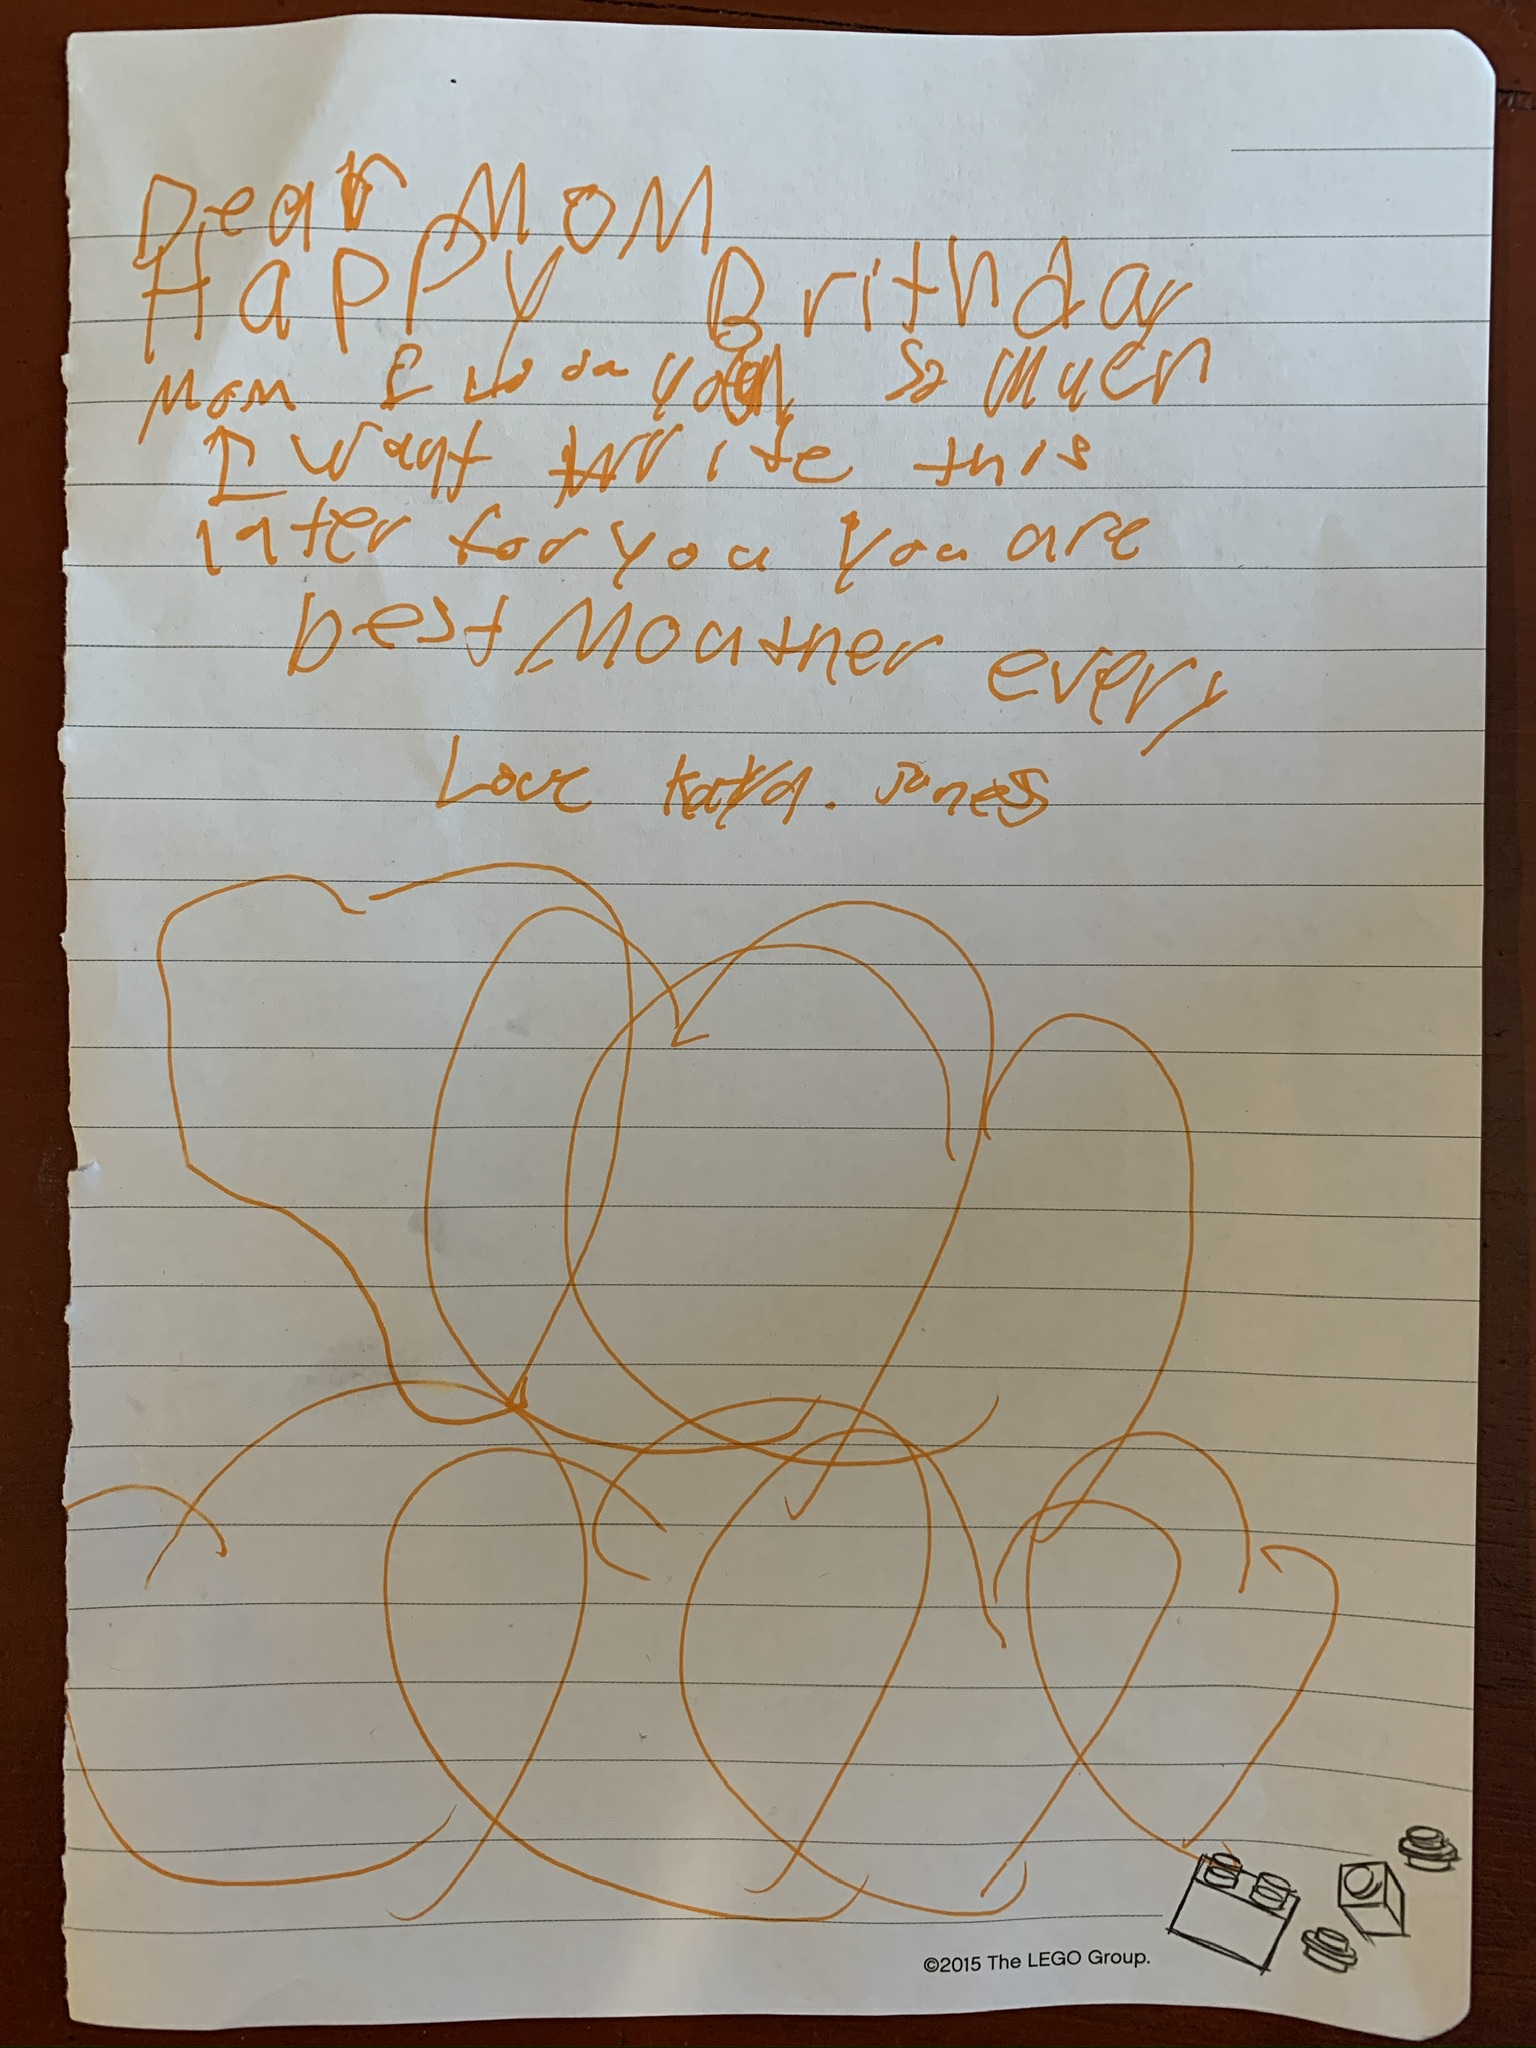 Dear MoM
Happy Brithday
Mom I you so much
I want write this
later for you you are
best Mouther every
Love Kaya. Jones
©2015 The LEGO Group.